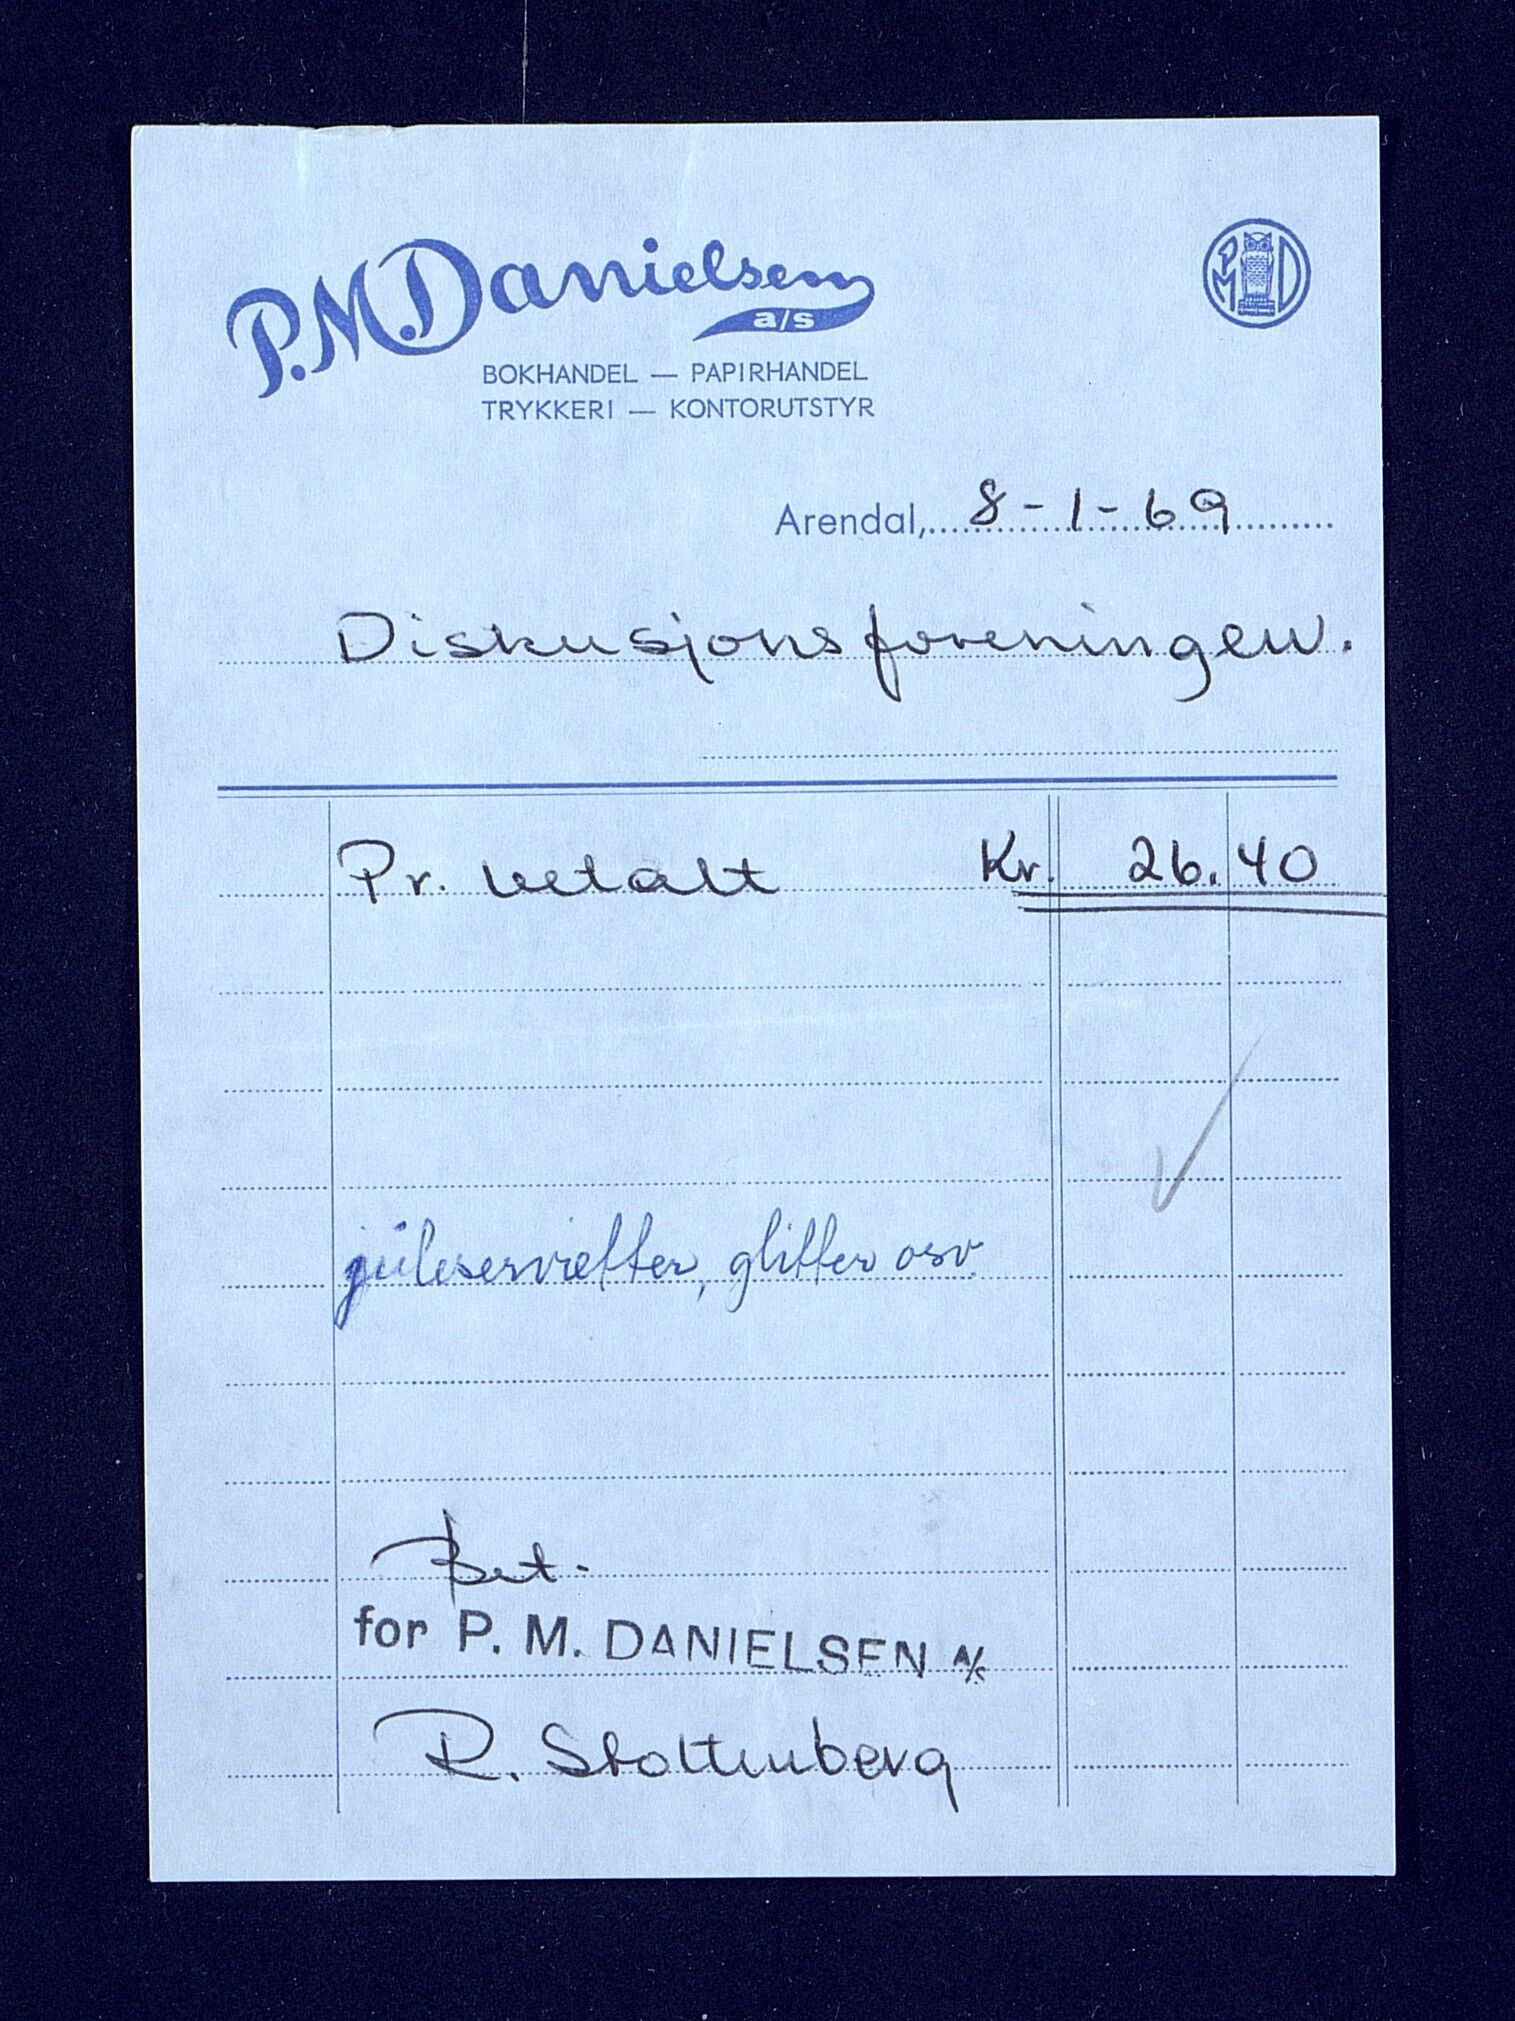 P.M. Danielsen a/s
PMD
BOKHANDEL — PAPIRHANDEL
TRYKKERI — KONTORUTSTYR
Arendal, 8-1-69
Diskusjonsforeningen.
Pr. betalt Kr. 26.40
juleservietter, glitter osv.
Bet.
for P. M. DANIELSEN A/S
R. Stoltenberg